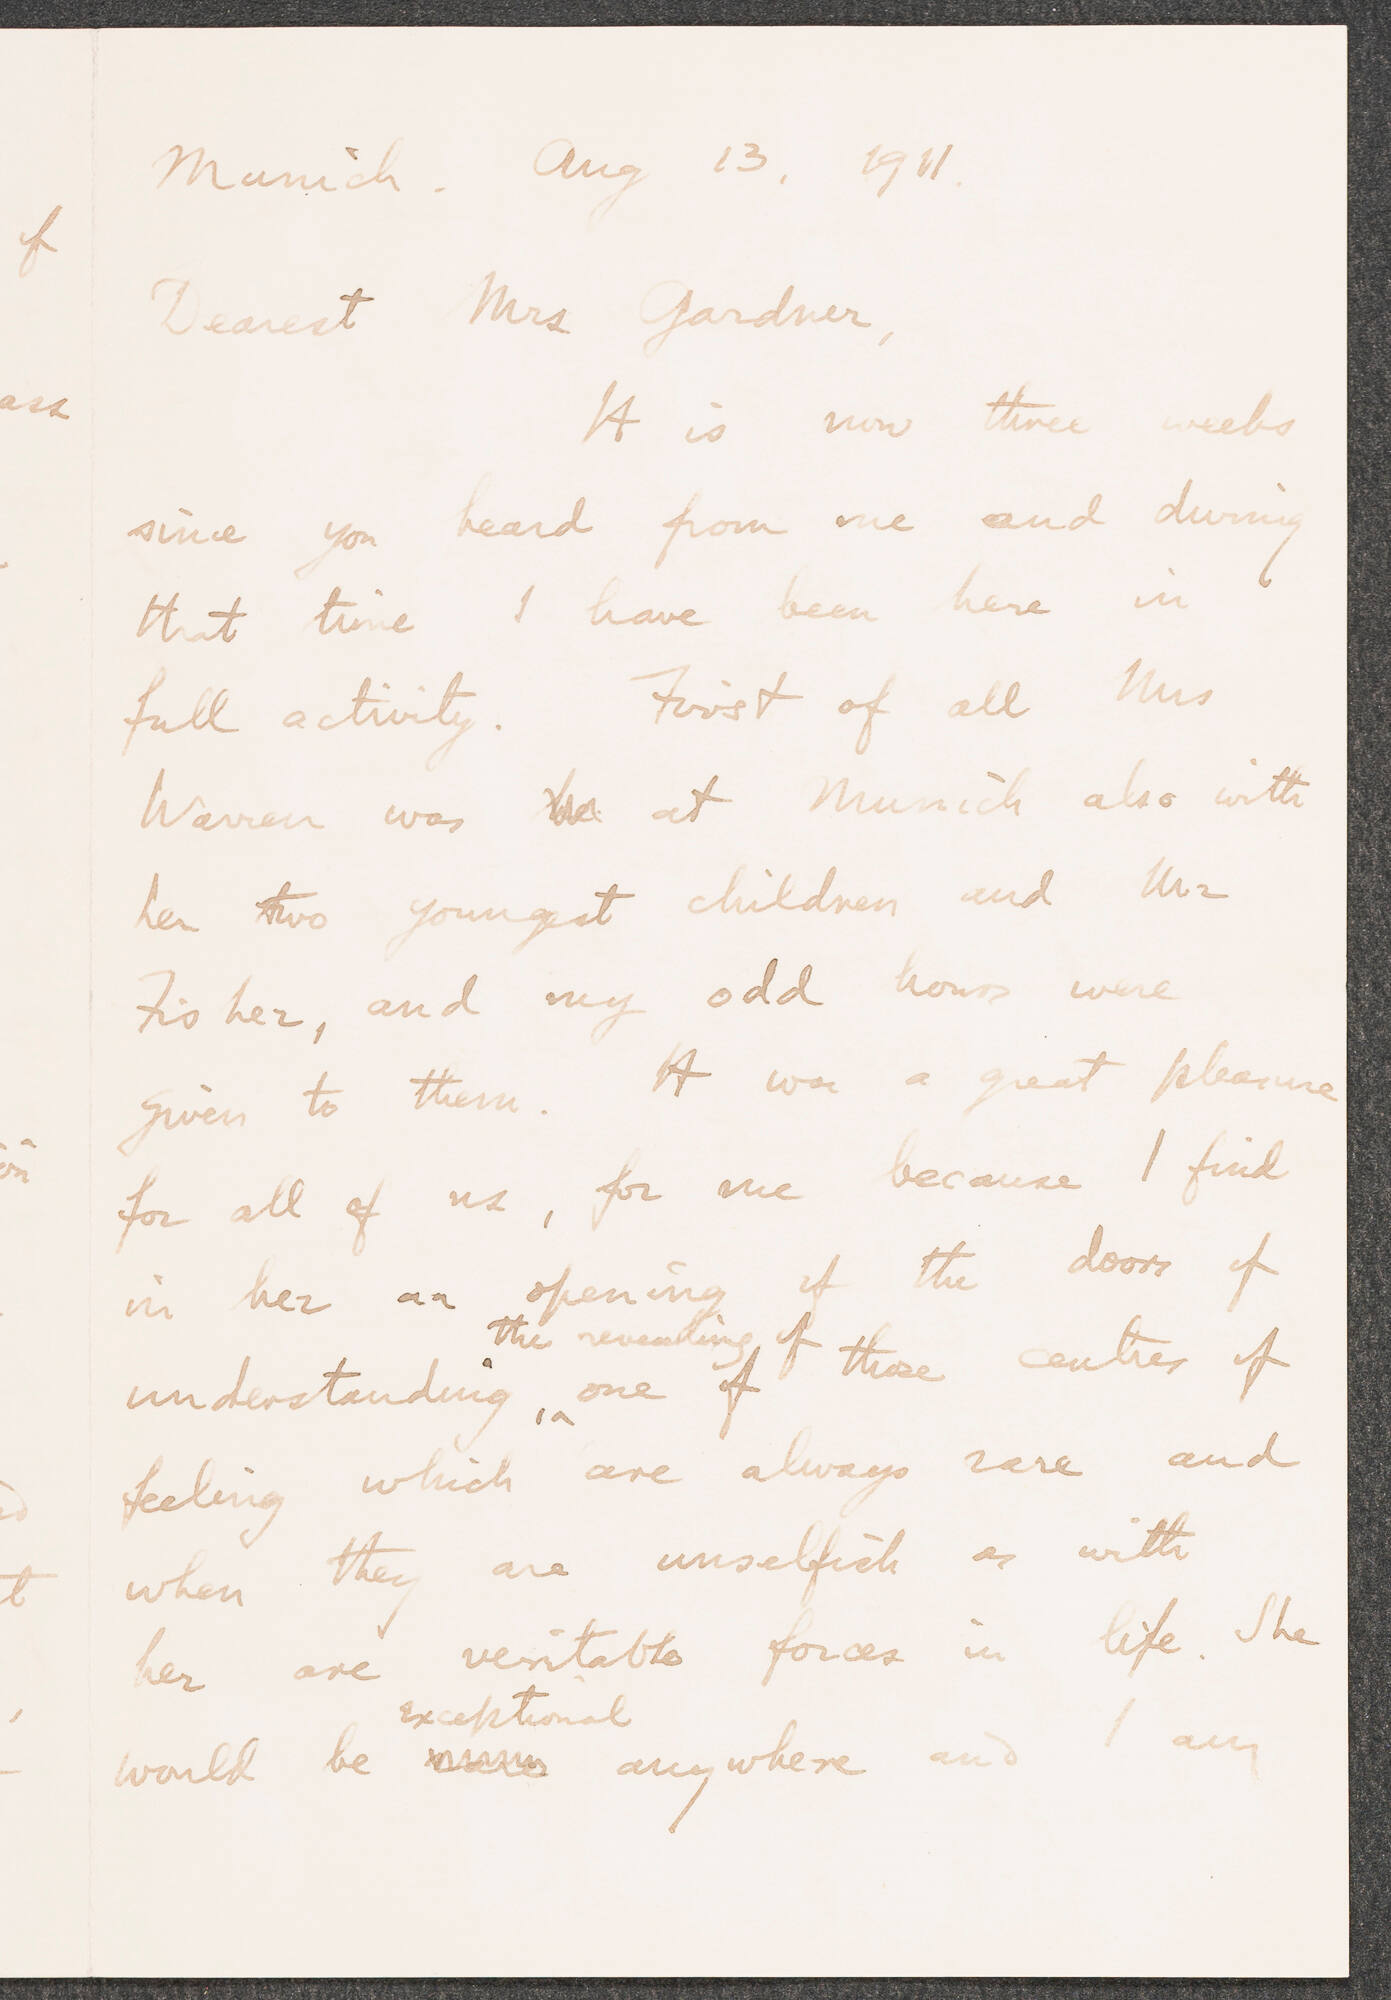 Munich. Aug 13, 1911.
Dearest Mrs Gardner,
It is now three weeks
since you heard from me and during
that time I have been here in
full activity. First of all Mrs
Warren was at Munich also with
her two youngest children and Mr
Fisher, and my odd hours were
given to them. It was a great pleasure
for all of us, for me because I find
in her an opening of the doors of
the revealing of
understanding, one of those centres of
feeling which are always rare and
when they are unselfish as with
her are veritable forces in life. She
exceptional
would be anywhere and I am